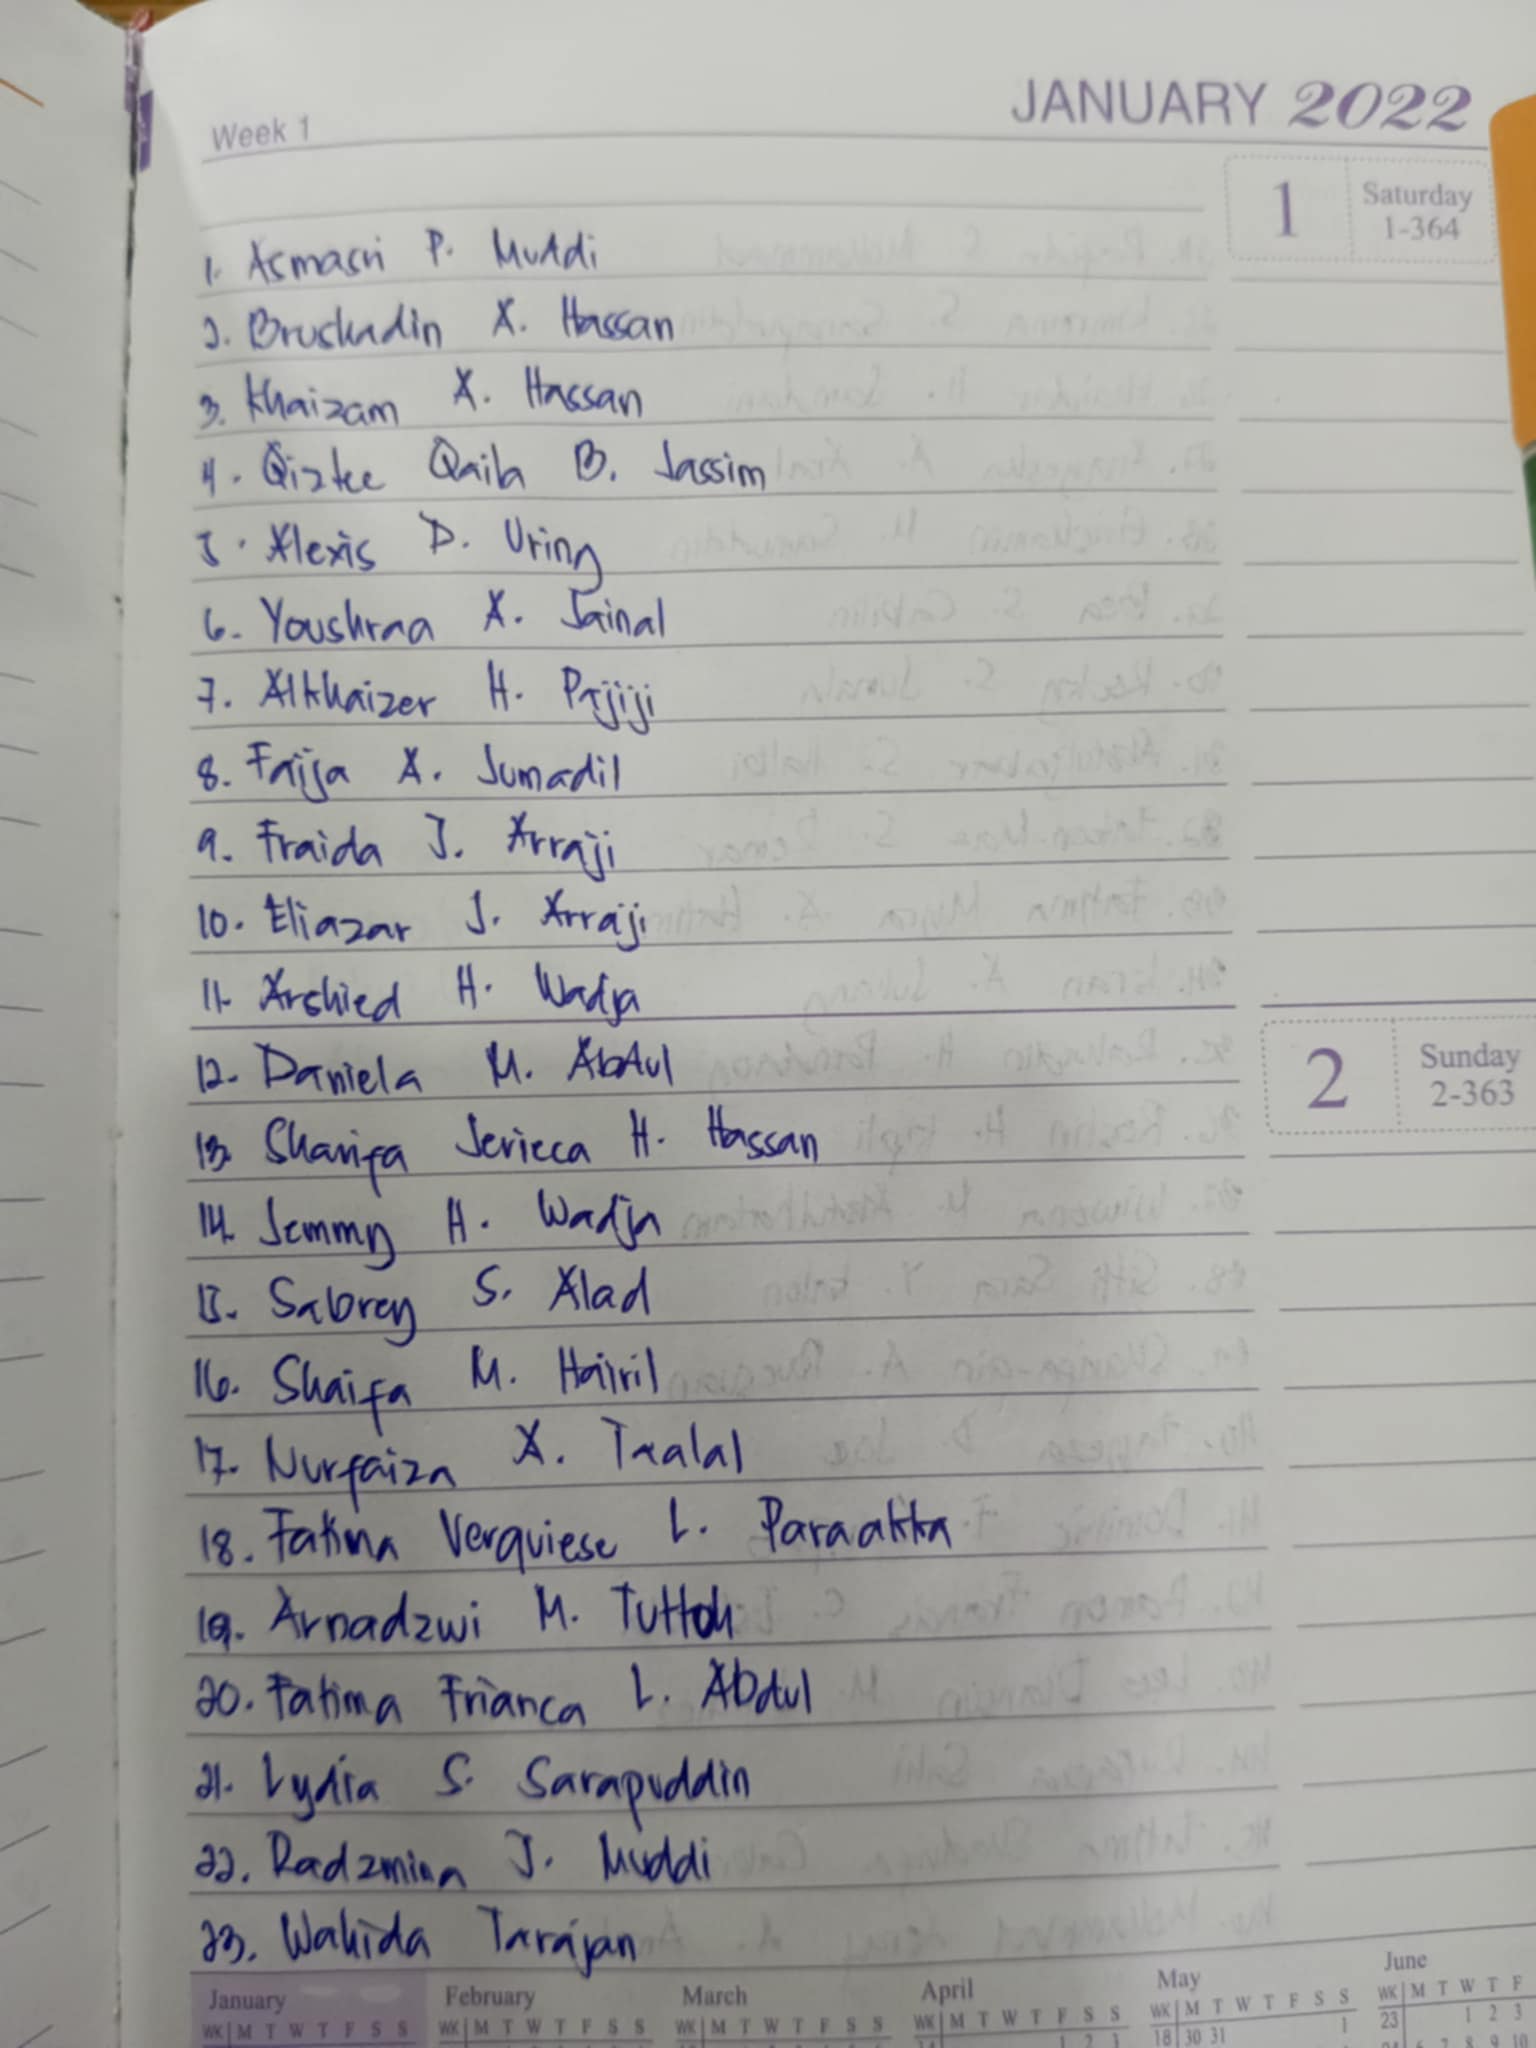 Week 1
JANUARY 2022
1 Saturday
1-364
1. Asmasri P. Muddi
2. Bruskadin A. Hassan
3. Khaizam A. Hassan
4. Qiztee Qaila B. Jassim
5. Alexis D. Uring
6. Youshraa A. Jainal
7. Alkhaizer H. Pajiji
8. Faija A. Jumadil
9. Fraida J. Arraji
10. Eliazar J. Arraji
11. Arshied H. Wadja
12. Daniela M. Abdul
2 Sunday
2-363
13. Sharifa Jerieca H. Hassan
14. Jemmy H. Wadja
15. Sabrey S. Alad
16. Shaifa M. Hairil
17. Nurfaiza A. Taalal
18. Fatima Verquiese L. Paraakka
19. Arnadzwi M. Tuttoh
20. Fatima Frianca L. Abdul
21. Lydia S. Sarapuddin
22. Radzmina J. Muddi
23. Wahida Tarajan
January February March April May June
WK M T W T F S S WK M T W T F S S WK M T W T F S S WK M T W T F S S WK M T W T F S S WK M T W T F
1 2 3 18 30 31 1 23 1 2 3